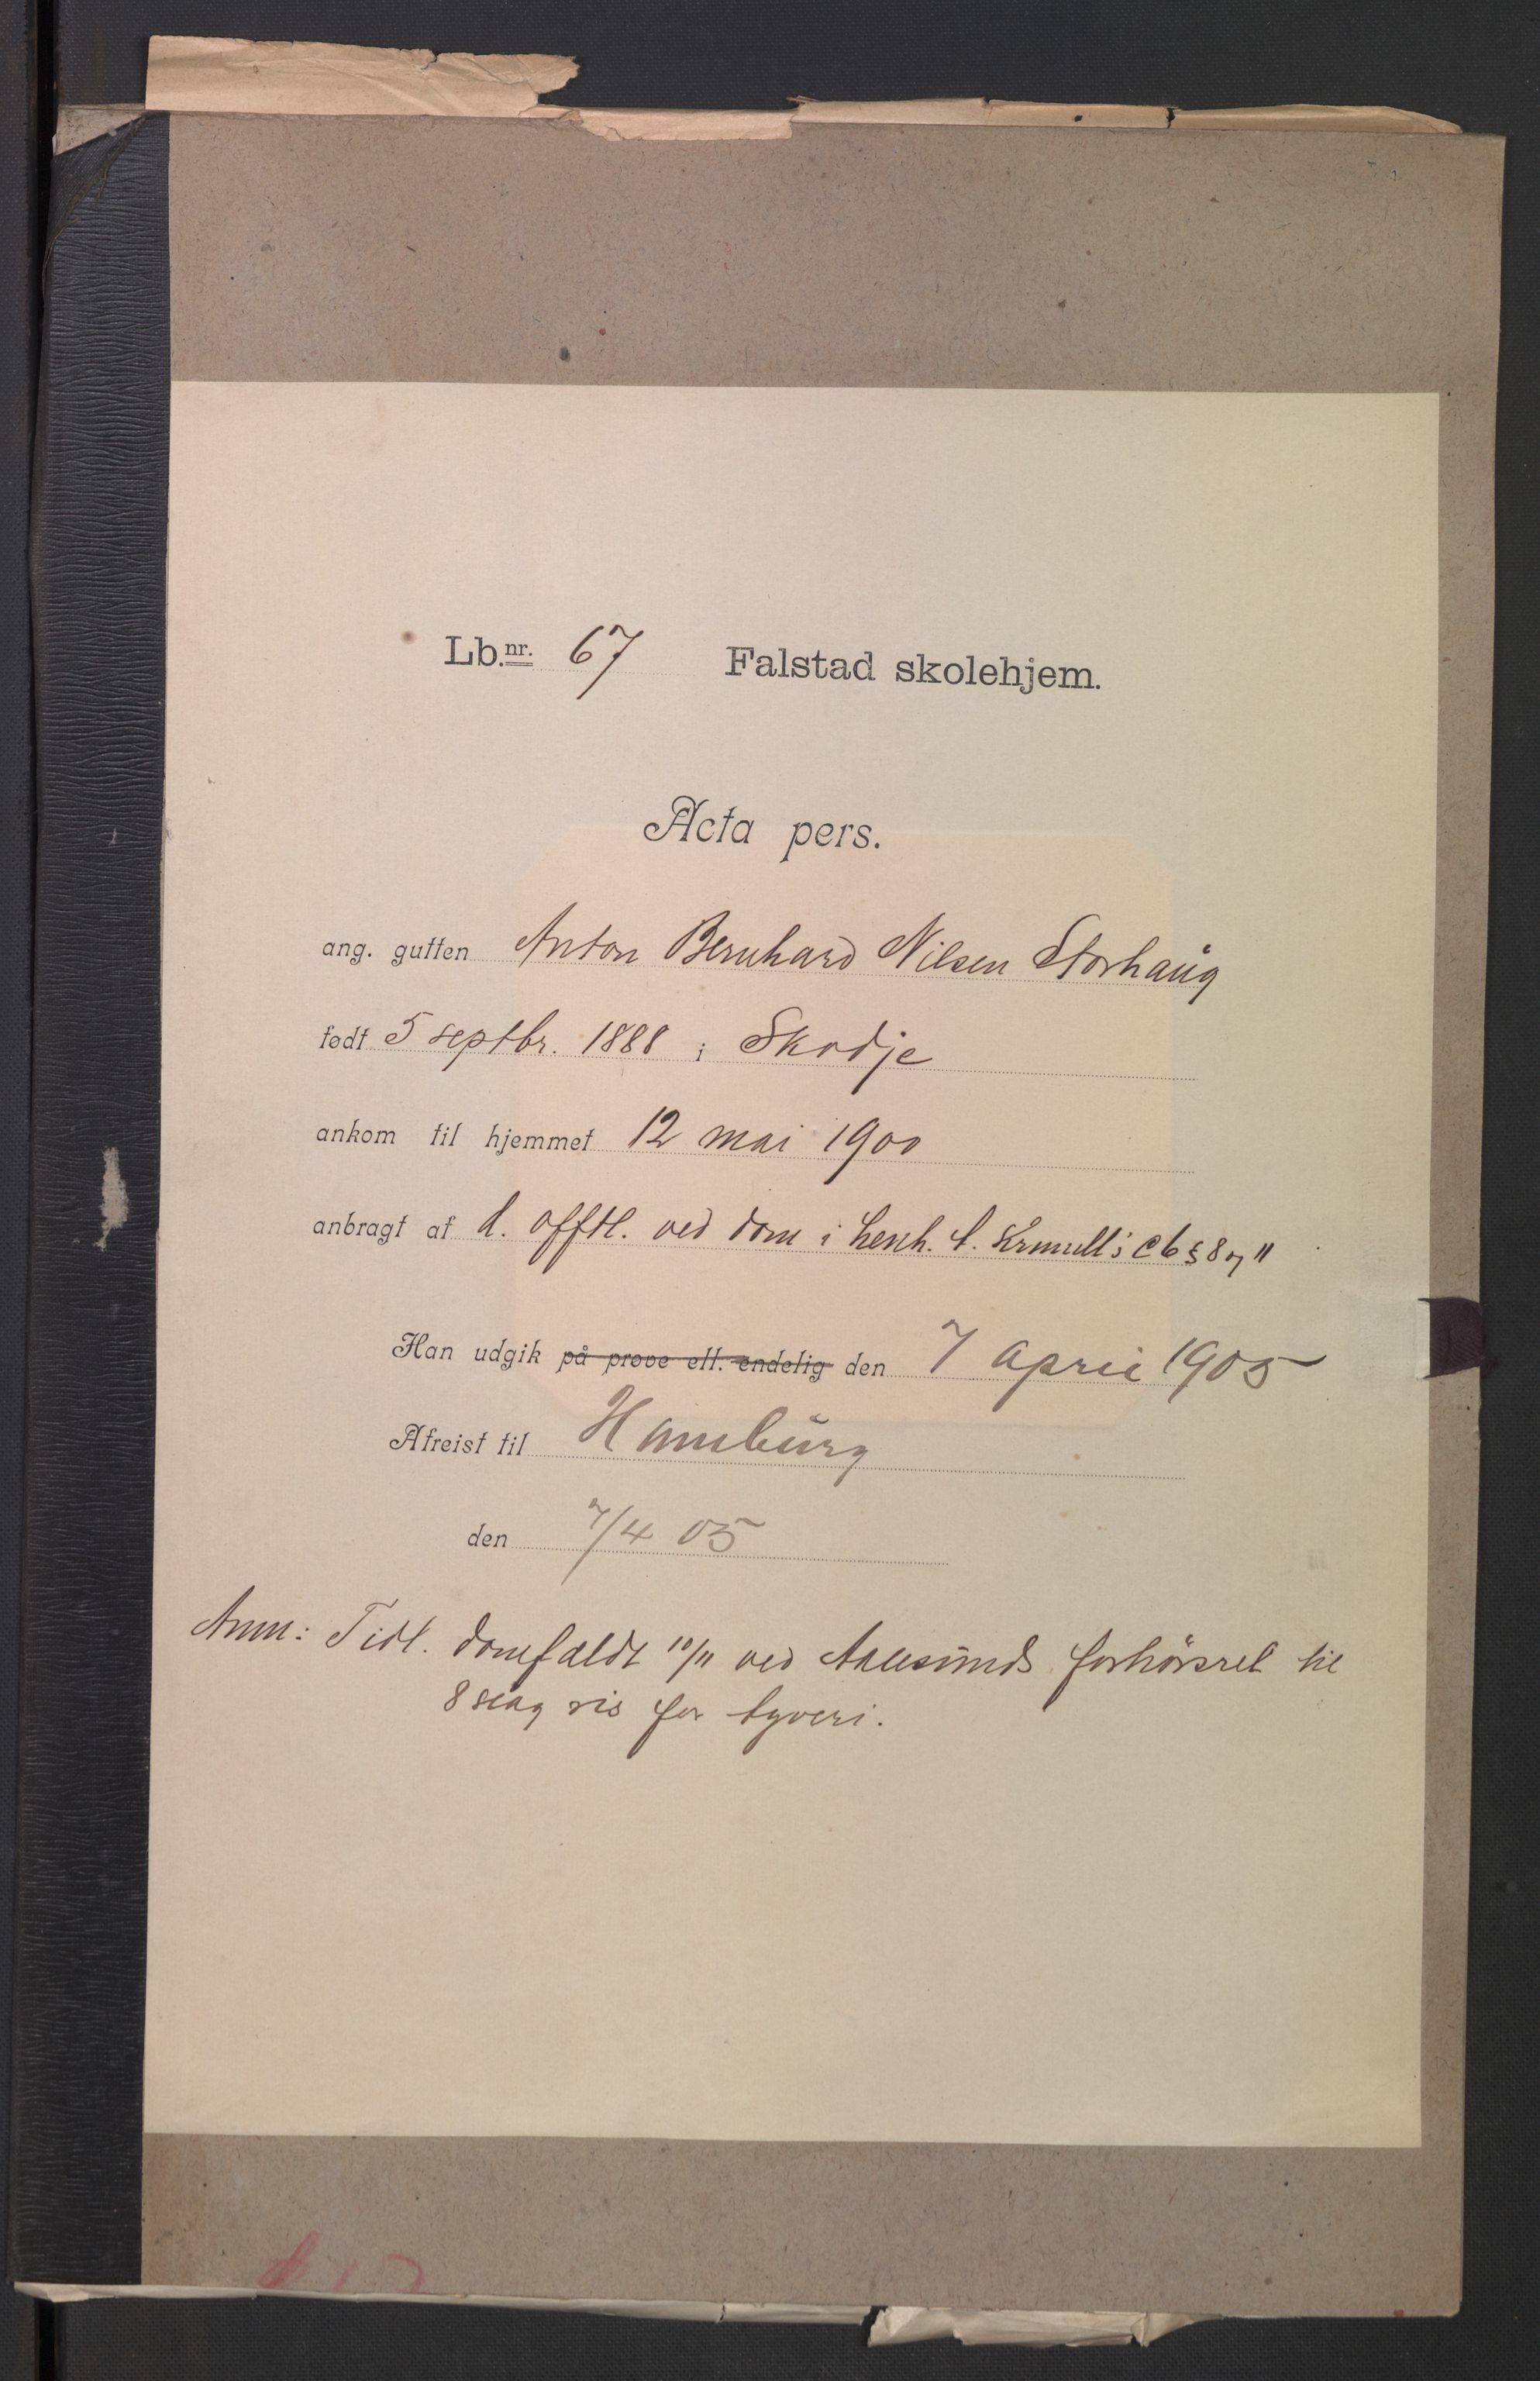 Lb.nr. 67 Falstad skolehjem.
Acta pers.
ang. gutten Anton Bernhard Nilsen Storhaug
født 5 septbr. 1888 i Skodje
ankom til hjemmet 12 mai 1900
anbragt af d. offtl. ved dom i henh. t. C 6 § 8
Han udgik på prøve ell. endelig den 7 april 1905
Afreist til Hamburg
den 7/4 05
Anm: Tidl. domfældt 10/11 ved Aalesunds forhörsret til
8 slag ris for tyveri.